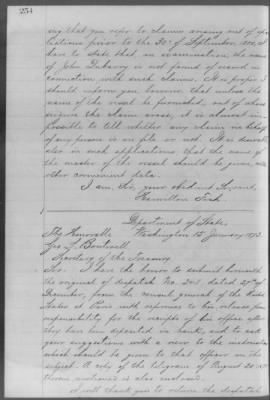 254
ing that you refer to claims arising out of spo-
liations prior to the 30" of September, 1800, I
have to state that, on examination, the name
of John Dubarry is not found of record in
connection with such claims. It is proper I
should inform you however, that unless the
name of the vessel be furnished, out of whose
seizure the claim arose, it is almost im-
possible to tell whether any claim in behalf
of any person is on file or not. It is desirable
also in such applications, that the name of
the master of the vessel should be given, with
other convenient data.
I am, Sir, your obedient Servant,
Hamilton Fish
Department of State,
Washington 15 January 1873.
The Honorable
Geo. S. Boutwell
Secretary of the Treasury
Sir: I have the honor to submit herewith
the original of despatch No. dated 27th of
December, from the Consul General of the United
States at Paris with reference to his
responsibility for the receipts of his office after
they have been deposited in bank, and to ask
your suggestions with a view to the instructions
which should be given to that officer on the
subject. A copy of the telegram of August 20
therein is also enclosed.
I will thank you to return the despatch